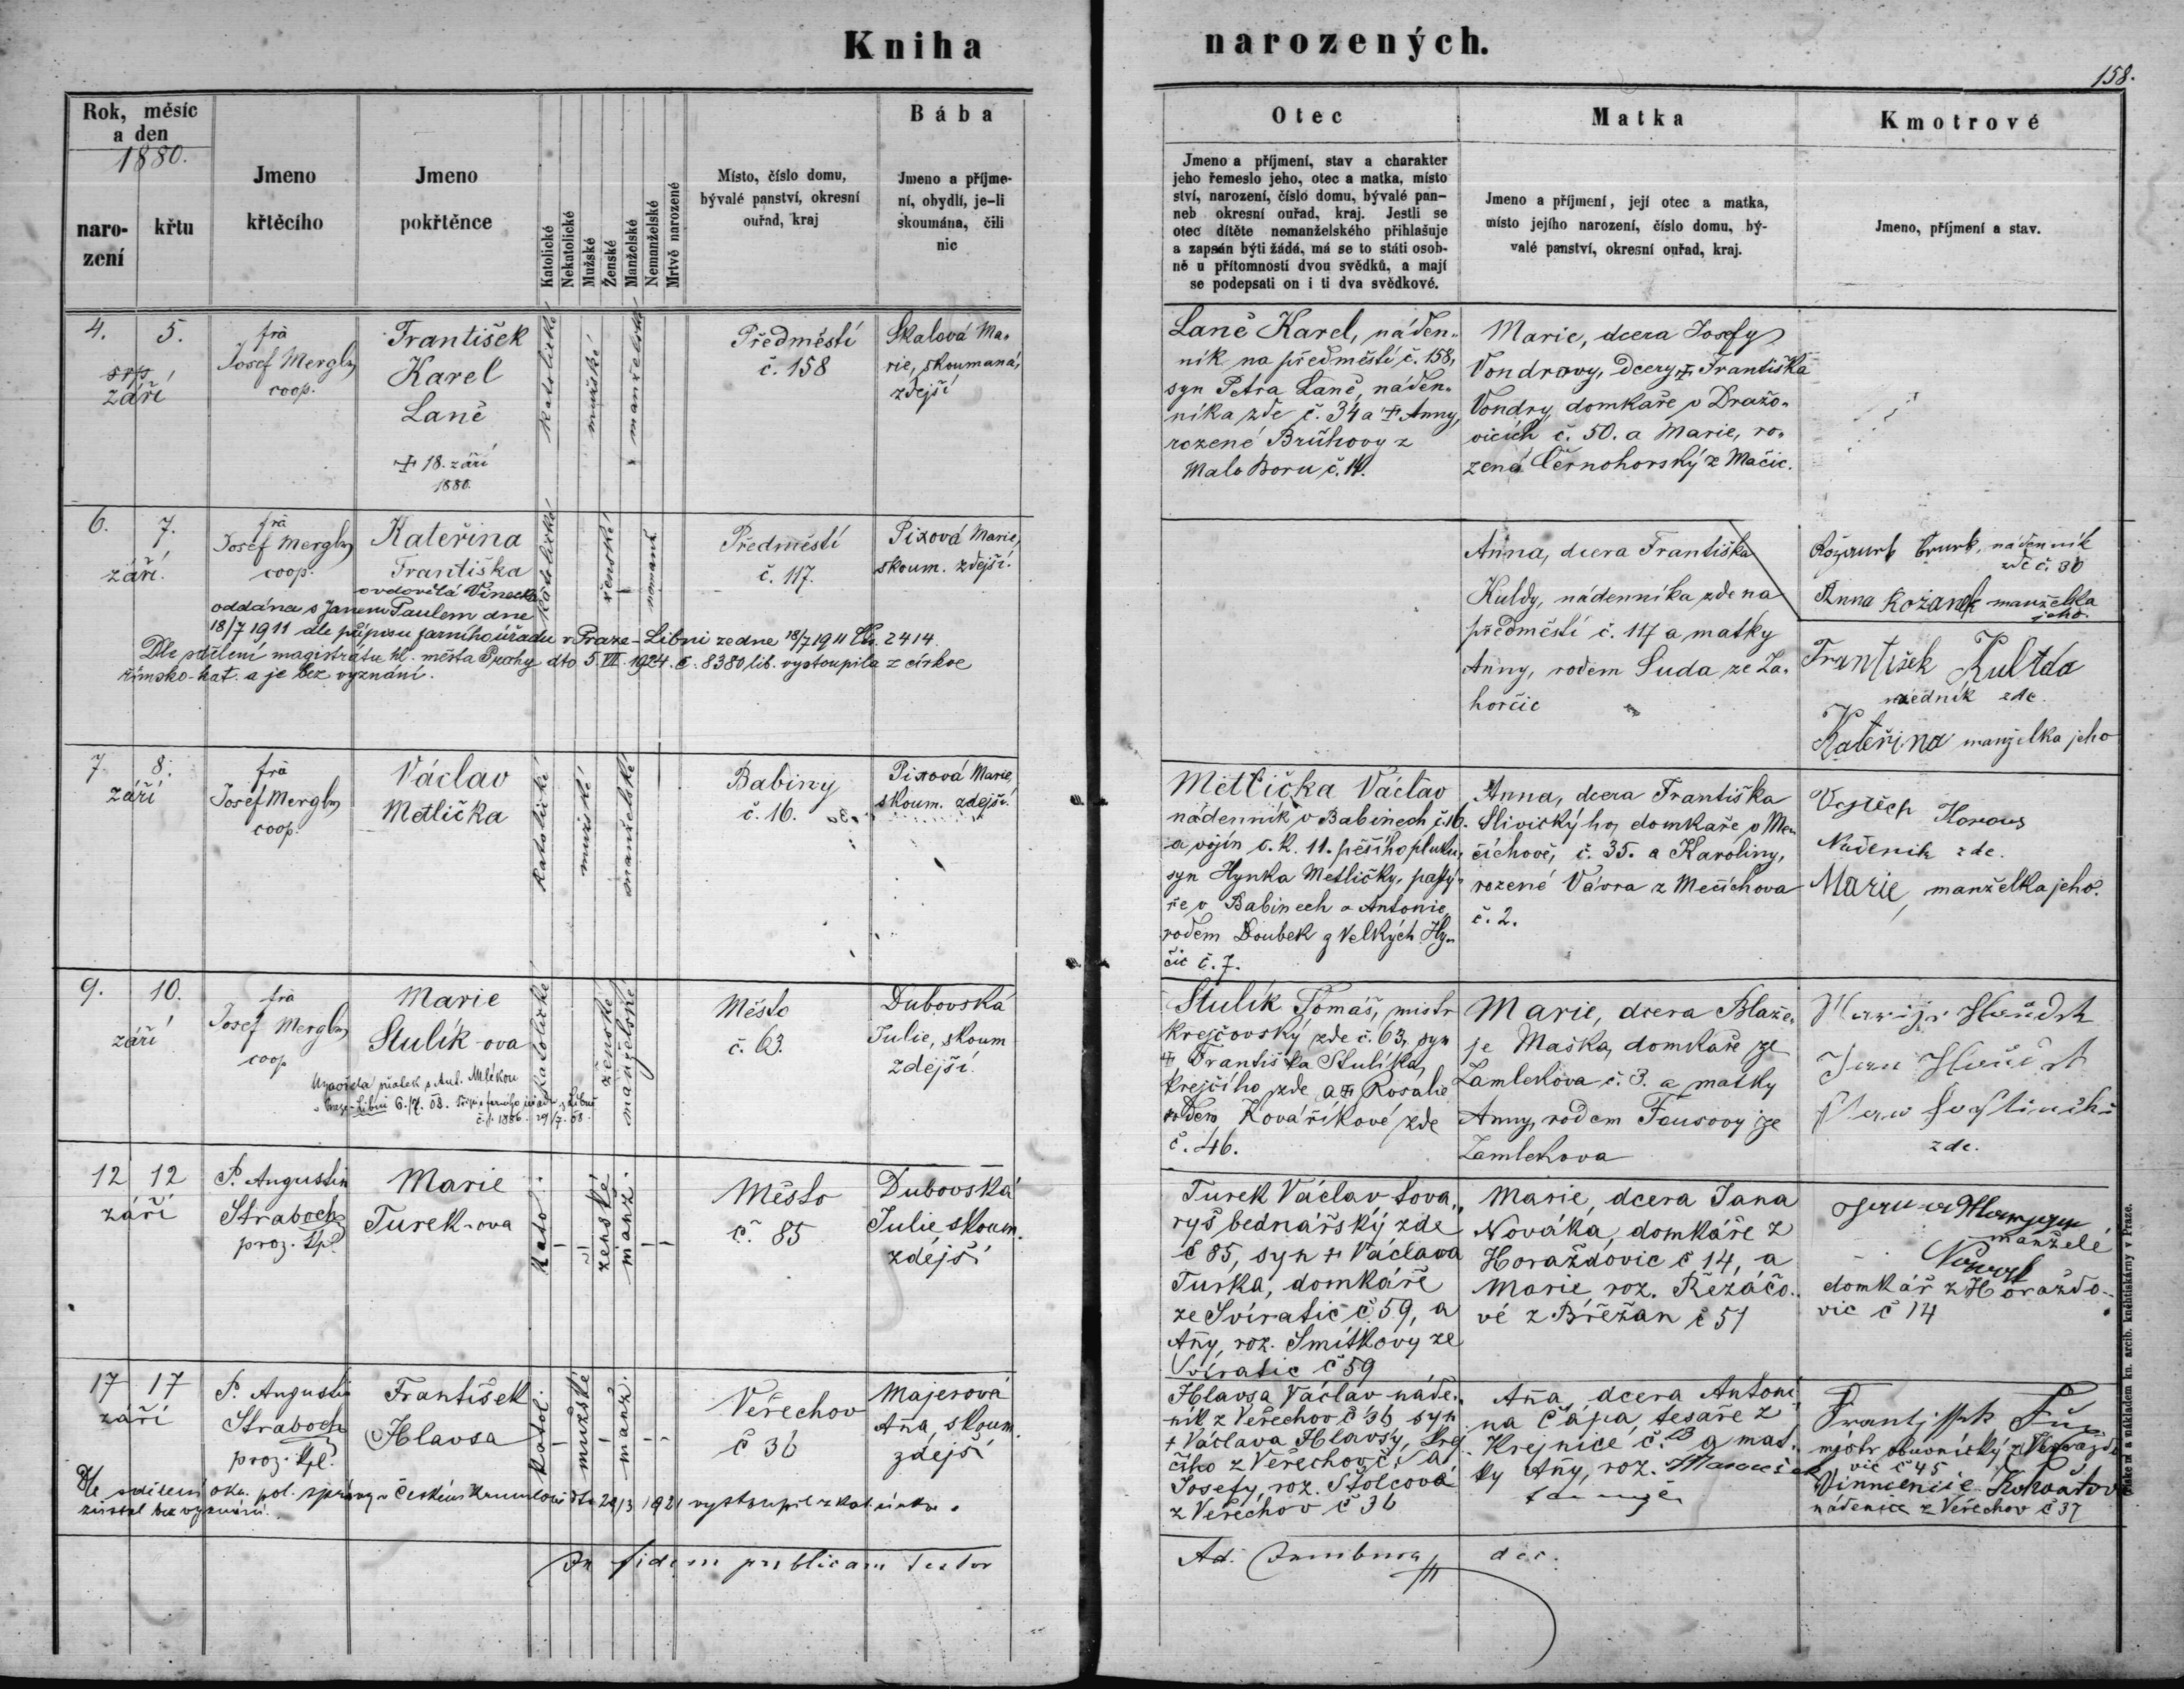 Kniha narozených.
158.
Rok, měsíc
a den
1880.
naro-
zení
křtu
Jmeno
křtěcího
Jmeno
pokřtěnce
Katolické
Nekatolické
Mužské
Ženské
Manželské
Nemanželské
Mrtvě narozené
Místo, číslo domu,
bývalé panství, okresní
ouřad, kraj
Bába
Jmeno a příjme-
ní, obydlí, je-li
skoumána, čili
nic
Otec
Jmeno a příjmení, stav a charakter
jeho řemeslo jeho, otec a matka, místo
ství, narození, číslo domu, bývalé pan-
neb okresní ouřad, kraj. Jestli se
otec dítěte nemanželského přihlašuje
a zapsán býti žádá, má se to státi osob-
ně u přítomností dvou svědků, a mají
se podepsati on i ti dva svědkové.
Matka
Jmeno a příjmení, její otec a matka,
místo jejího narození, číslo domu, bý-
valé panství, okresní ouřad, kraj.
Kmotrové
Jmeno, příjmení a stav.
4. 5.
srp.
září
Josef Mergl
coop.
František
Karel
Laně
+ 18. září
1880.
katolické
mužské
manželské
Předměstí
č. 158
Skalová Ma-
rie, skoumaná,
zdejší
Laně Karel, náden-
ník na předměstí č. 158,
syn Petra Laně, náden-
níka zde č. 34 a + Anny,
rozené Brůhovy z
Malo Boru č. 14.
Marie, dcera Josefy
Vondrovy, dcery + Františka
Vondry, domkaře v Dražo-
vicích č. 50. a Marie, ro-
zená Černohorský z Mačic.
6. 7.
září.
Josef Mergl
coop.
Kateřina
Františka
ovdovělá
oddána s Janem Paulem dne
18/7 1911 dle přípisu farního úřadu v Praze-Libni ze dne 18/7 1911 čís. 2414.
Dle sdělení magistrátu hl. města Prahy dto 5. VII. 1924. č. 8380 lib. vystoupila z církve
římsko-kat. a je bez vyznání.
katolické
ženské
Předměstí
č. 117.
Pixová Marie,
skoum. zdejší.
Anna, dcera Františka
Kuldy, nádenníka zde na
předměstí č. 117 a matky
Anny, rodem Suda ze Za-
horčic
nádenník
zde č. 30
Anna manželka
jeho.
František Kulda
zde.
Kateřina manželka jeho
7 8.
září
Josef Mergl
coop.
Václav
Metlička
katolické
mužské
manželské
Babiny
č. 16.
Pixová Marie,
skoum. zdejší.
Metlička Václav
nádenník v Babinech č. 16.
a vojín c. k. 11. pěšího pluku,
syn Hynka Metličky, pastý-
ře v Babinech a Antonie,
rodem Doubek z Velkých Hy-
čic č. 7.
Anna, dcera Františka
Slivickýho, domkaře v Me-
číchově, č. 35. a Karoliny,
rozené Vávra z Mečíchova
č. 2.
Vojtěch
Nádenik zde.
Marie, manželka jeho.
9. 10.
září
Josef Mergl
coop
Marie
Stulík-ova
Uzavřela sňatek s Ant. Mlčkou
v Praze-Libni 6./7. 08.
katolické
ženské
manželské
Město
č. 63.
Dubovská
Julie, skoum
zdejší.
Stulík Tomáš, mistr
krejčovský zde č. 63, syn
+ Františka Stulíka,
krejčího zde, a + Rosalie
rodem Kovaříkové zde
č. 46.
Marie, dcera Blaže-
je Maška, domkaře ze
Zamlekova č. 3. a matky
Anny, rodem Fousovy ze
Zamlekova
Jan
zde.
12 12
září
P. Augustin
Straboch
proz. kpl.
Marie
Turek-ova
katol.
ženské
manž.
Město
č. 85
Dubovská
Julie skoum.
zdejší
Turek Václav tova-
ryš bednářský zde
č 85, syn + Václava
Turka, domkáře
ze Svíratic č. 59, a
Añy, roz. Smítkovy ze
Svíratic č 59
Marie, dcera Jana
Nováka, domkáře z
Horažďovic č 14, a
Marie, roz. Řezáčo-
vé z Břežan č 51
manželé
domkář z Horažďo-
vic č 14
17 17
září
P. Augustin
Straboch
proz. kpl.
František
Hlavsa
katol.
mužské
manž.
Veřechov
č 36
Majerová
Aña, skoum.
zdejší
Hlavsa Václav náde-
ník z Veřechov č 36 syn
+ Václava Hlavsy, krej-
čího z Veřechov č. a
Josefy, roz. Štolcová
z Veřechov č 36
Aña, dcera Antoni-
na Čápa, tesaře z
Krejnice č. 13 a mat-
ky Añy, roz.
František
mistr obuvnický z Horažďo-
vic č 45
nádenice z Veřechov č 37
Dle sdělení okr. pol. správy v Českém Krumlově dto 29/3 1921 vystoupil z kat. církve a
zůstal bez vyznání.
In fidem publicam testor
Ad. dec.
Tiskem a nákladem kn. arcib. kněhtiskárny v Praze.